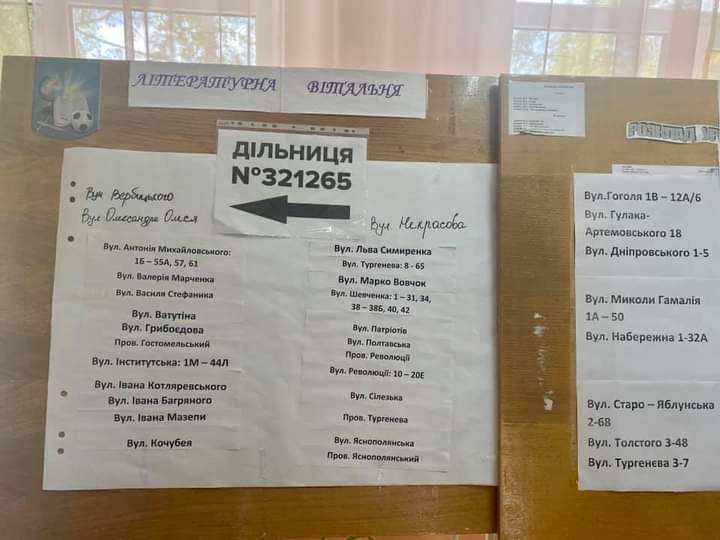 ЛІТЕРАТУРНА ВІТАЛЬНЯ
ДІЛЬНИЦЯ
№321265
Вул Вербицького
Вул Олександра Олеся
Вул. Некрасова
Вул. Антонія Михайловського:
1Б – 55А, 57, 61
Вул. Валерія Марченка
Вул. Василя Стефаника
Вул. Ватутіна
Вул. Грибоєдова
Пров. Гостомельський
Вул. Інститутська: 1М – 44Л
Вул. Івана Котляревського
Вул. Івана Багряного
Вул. Івана Мазепи
Вул. Кочубея
Вул. Льва Симиренка
Вул. Тургенева: 8 - 65
Вул. Марко Вовчок
Вул. Шевченка: 1 – 31, 34,
38 – 38Б, 40, 42
Вул. Патріотів
Вул. Полтавська
Пров. Революції
Вул. Революції: 10 – 20Е
Вул. Сілезька
Пров. Тургенева
Вул. Яснополянська
Пров. Яснополянський
РОЗКЛАД
Вул.Гоголя 1В – 12А/6
Вул. Гулака-
Артемовського 18
Вул. Дніпровського 1-5
Вул. Миколи Гамалія
1А – 50
Вул. Набережна 1-32А
Вул. Старо – Яблунська
2-68
Вул. Толстого 3-48
Вул. Тургенєва 3-7